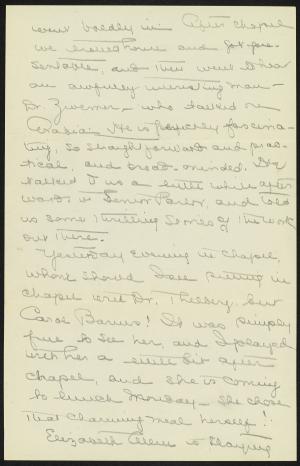 went boldly in. After chapel
we rushed home and got pre-
sentable, and then went to hear
an awfully interesting man —
Dr. Zwemer — who talked on
Arabia. He is perfectly fascina-
ting, so straightforward and prac-
tical, and broad-minded. He
talked to us a little while after
wards in Senior Parlor, and told
us some thrilling stories of the work
out there.
Yesterday evening in chapel,
whom should I see sitting in
chapel with Dr. Thelberg, but
Carol Barnes! It was simply
fine to see her, and I played
with her a little bit after
chapel, and she is coming
to lunch Monday — she chose
that charming meal herself!
Elizabeth Allen is staying